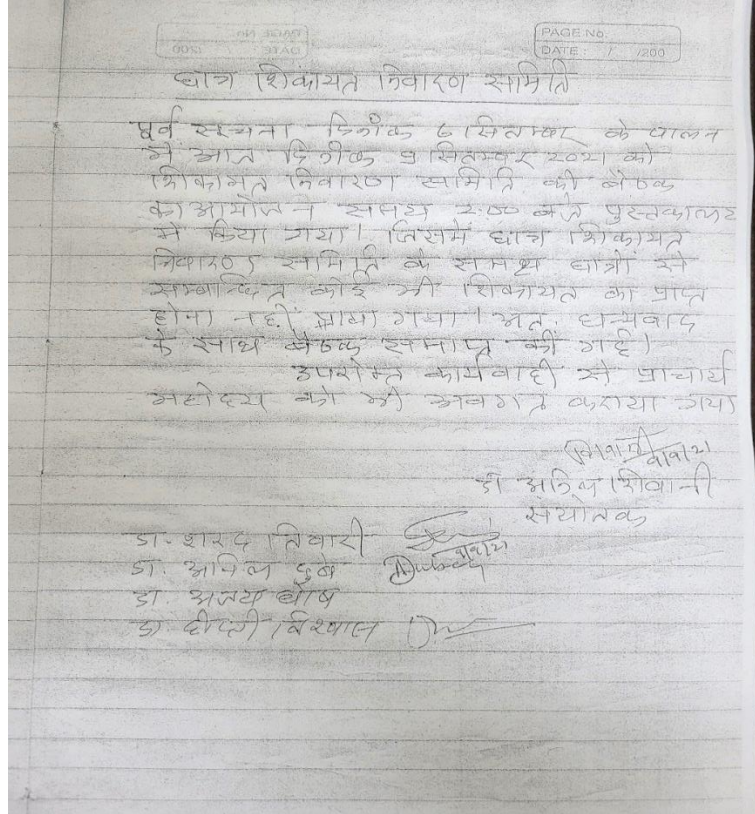 PAGE No.
DATE: / /200
छात्र शिकायत निवारण समिति
पूर्व सूचना दिनाँक 6 सितम्बर के पालन
में आज दिनाँक 9 सितम्बर 2021 को
शिकायत निवारण समिति की बैठक
का आयोजन समय 2:00 बजे पुस्तकालय
में किया गया। जिसमें छात्र शिकायत
निवारण समिति के समक्ष छात्रों से
सम्बन्धित कोई भी शिकायत का प्राप्त
होना नहीं पाया गया। अतः धन्यवाद
के साथ बैठक समाप्त की गई।
उपरोक्त कार्यवाही से प्राचार्य
महोदय को भी अवगत कराया गया
डॉ शिवानी
संयोजक
डा. शरद तिवारी
डा. अनिल दुबे
डा. अजय घोष
डा दीप्ती विश्वास